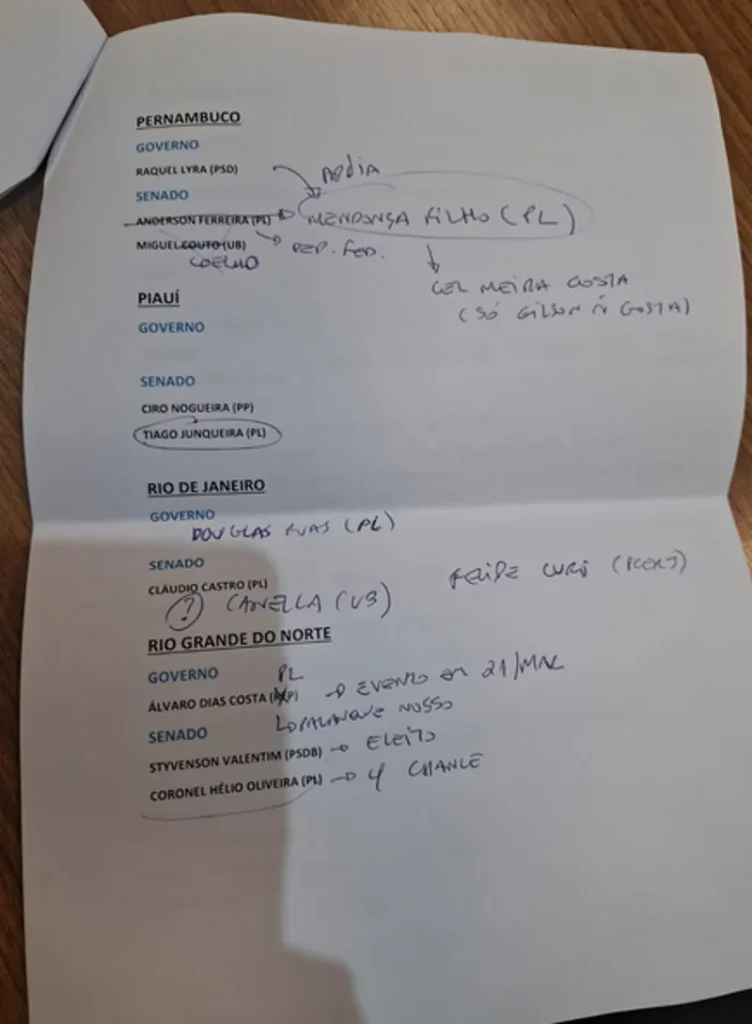 PERNAMBUCO
GOVERNO
RAQUEL LYRA (PSD)
APOIA
SENADO
ANDERSON FERREIRA (PL) MENDONÇA FILHO (PL)
MIGUEL COUTO (UB) DEP. FED.
COELHO
CEL MEIRA GOSTA
(SÓ GILSON Ñ GOSTA)
PIAUÍ
GOVERNO
SENADO
CIRO NOGUEIRA (PP)
TIAGO JUNQUEIRA (PL)
RIO DE JANEIRO
GOVERNO
DOUGLAS RUAS (PL)
SENADO
CLÁUDIO CASTRO (PL) FELIPE CURI (PCERJ)
? CANELLA (UB)
RIO GRANDE DO NORTE
GOVERNO PL
ÁLVARO DIAS COSTA ( P) EVENTO EM 21/MAR
PALANQUE NOSSO
SENADO
STYVENSON VALENTIM (PSDB) ELEITO
CORONEL HÉLIO OLIVEIRA (PL) CHANCE